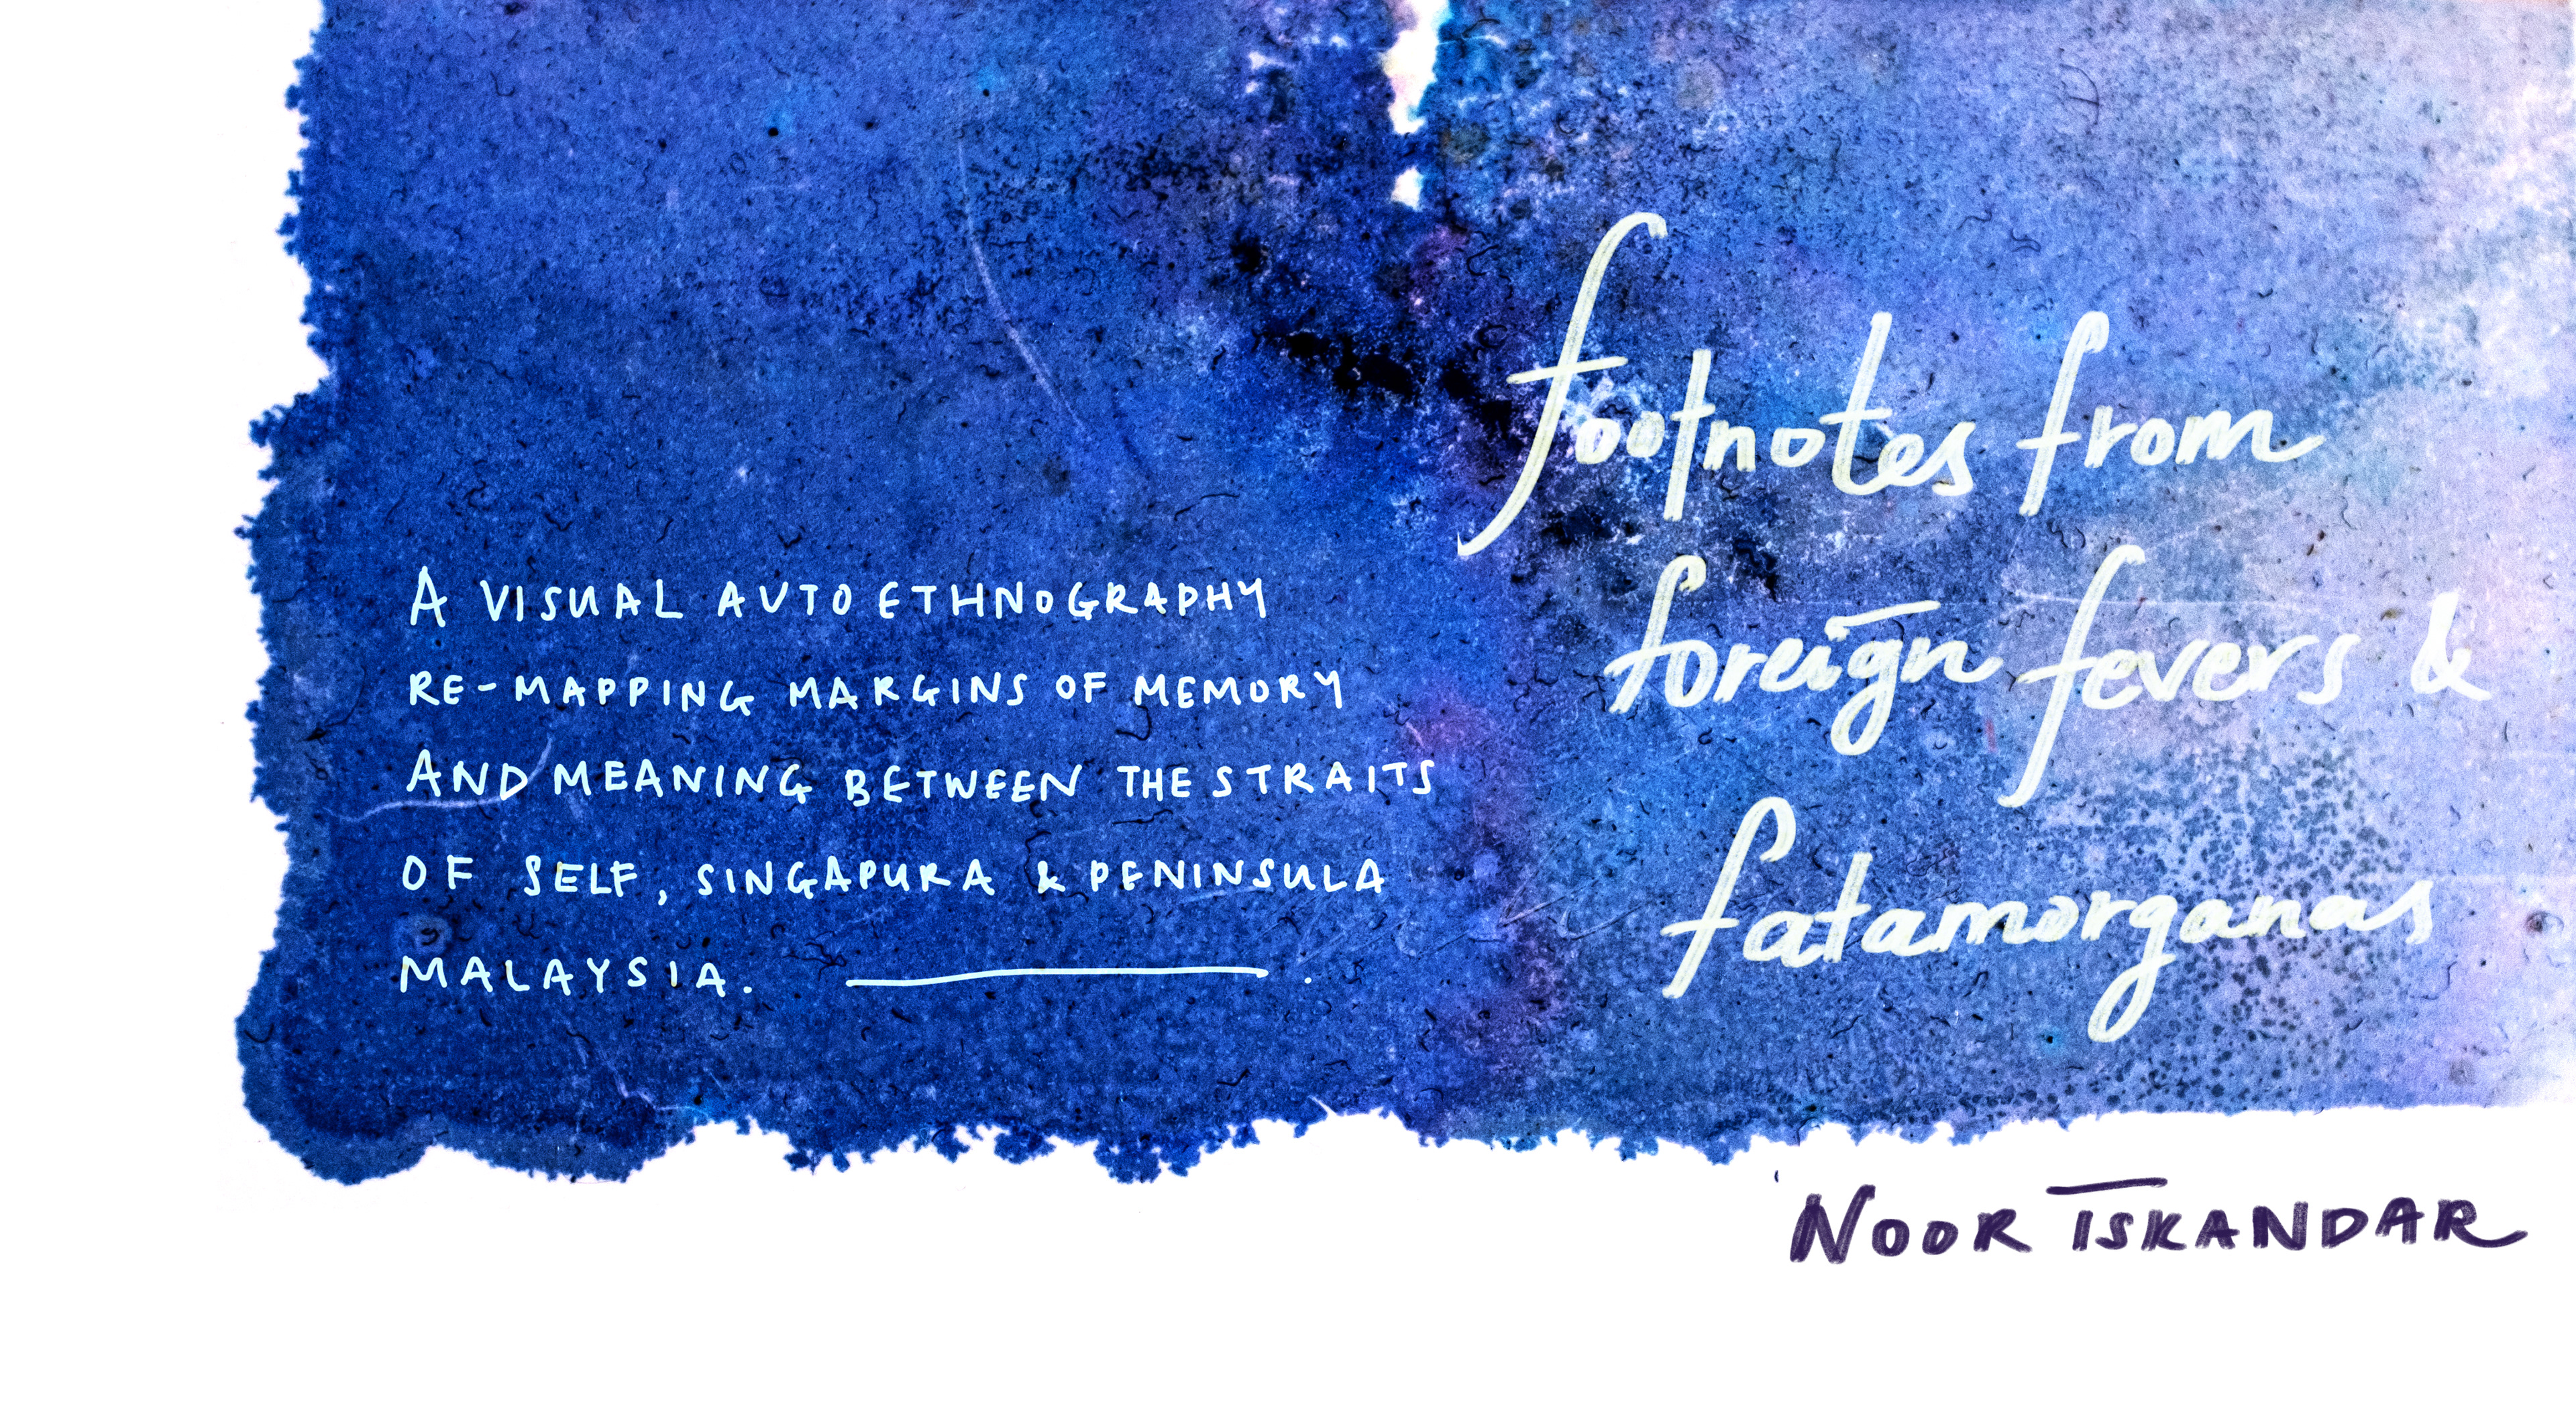 A VISUAL AUTO ETHNOGRAPHY
RE-MAPPING MARGINS OF MEMORY
AND MEANING BETWEEN THE STRAITS
OF SELF, SINGAPURA & PENINSULA
MALAYSIA.
footnotes from
foreign fevers &
fatamorganas
NOOR ISKANDAR